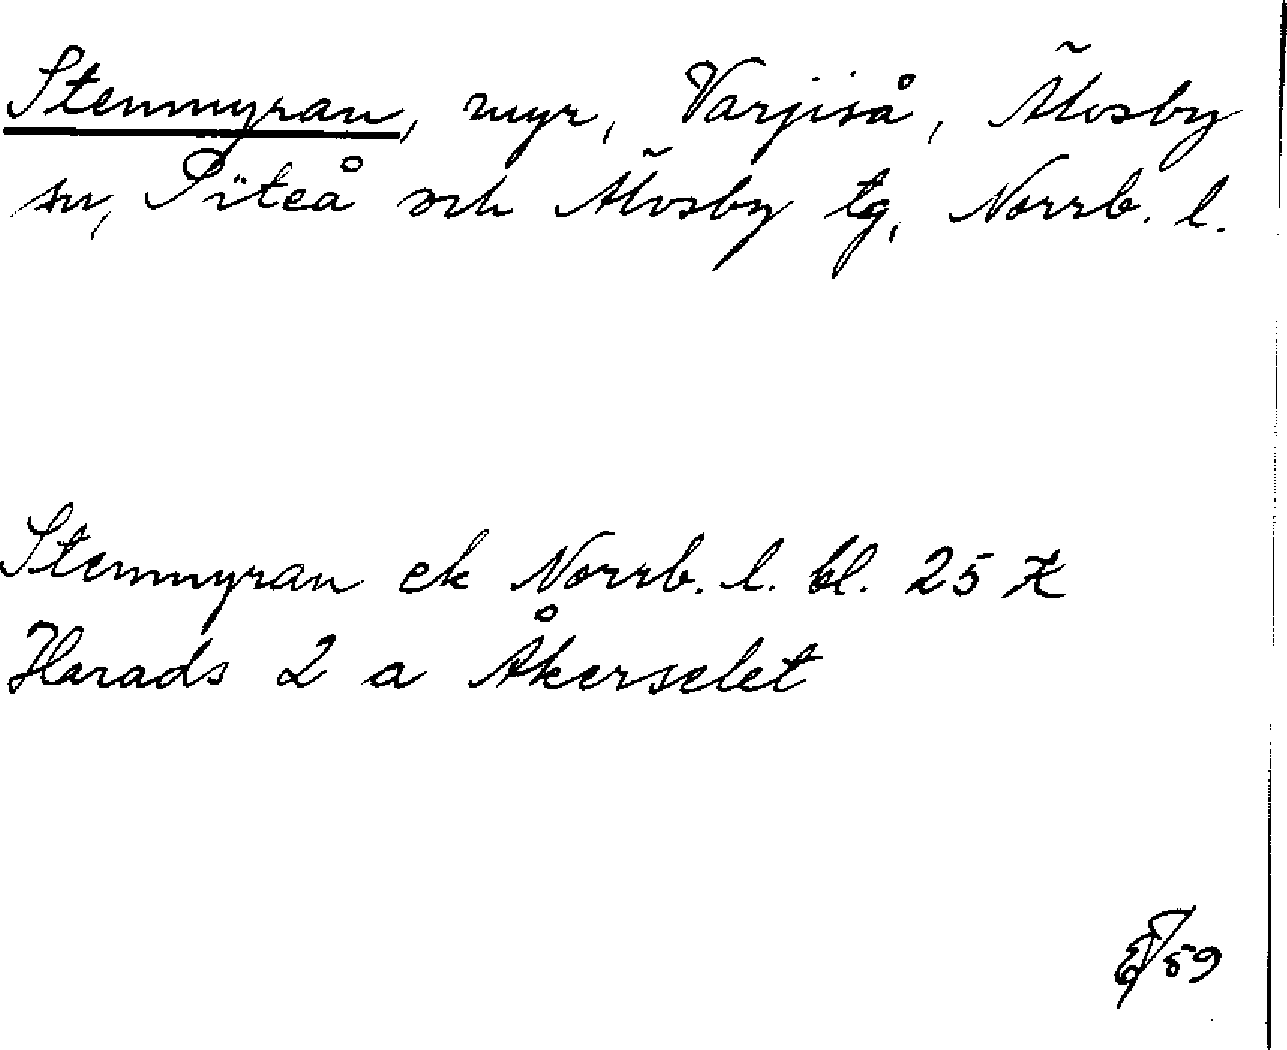 Stenmyran, myr, Varjiså, Älvsby
sn, Piteå och Älvsby tg, Norrb. l.
Stenmyran ek Norrb. l. bl. 25 K
Harads 2 a Åkerselet
59